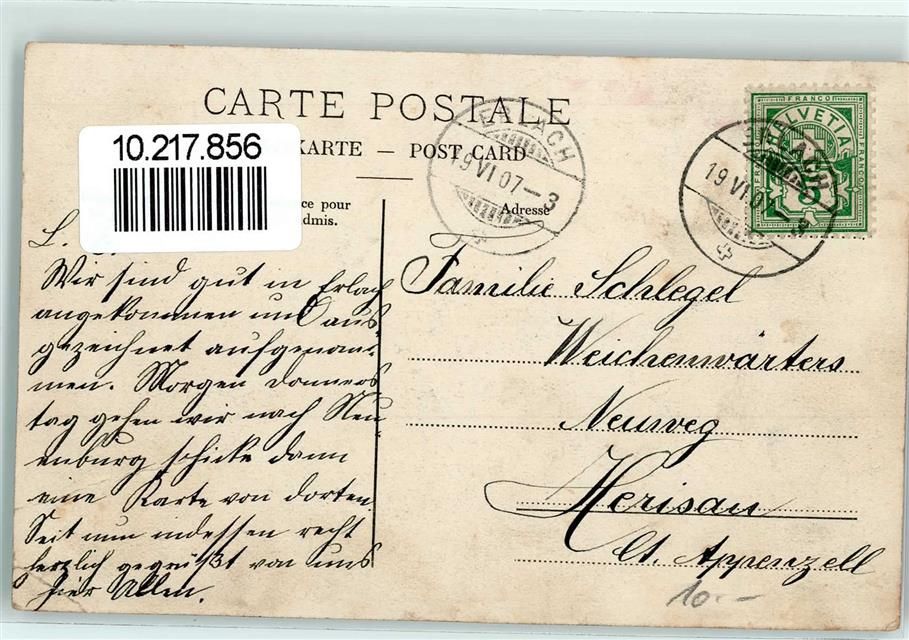 CARTE POSTALE
10.217.856
KARTE — POST CARD
ce pour
dmis.
Adresse
ERLACH
19 VI 07 – 3
ERLACH
19 VI 07
FRANCO
HELVETIA
FRANCO
FRANCO
5
L.
Wir sind gut in Erlach
angekommen und aus-
gezeichnet aufgenom-
men. Morgen Donners
tag gehen wir nach Neu-
enburg schicke dann
eine Karte von dorten.
Seit nun indessen recht
herzlich gegrüßt von uns
hier Allen.
Familie Schlegel
Weichenwärters
Neuweg
Herisau
Ct. Appenzell
10.–